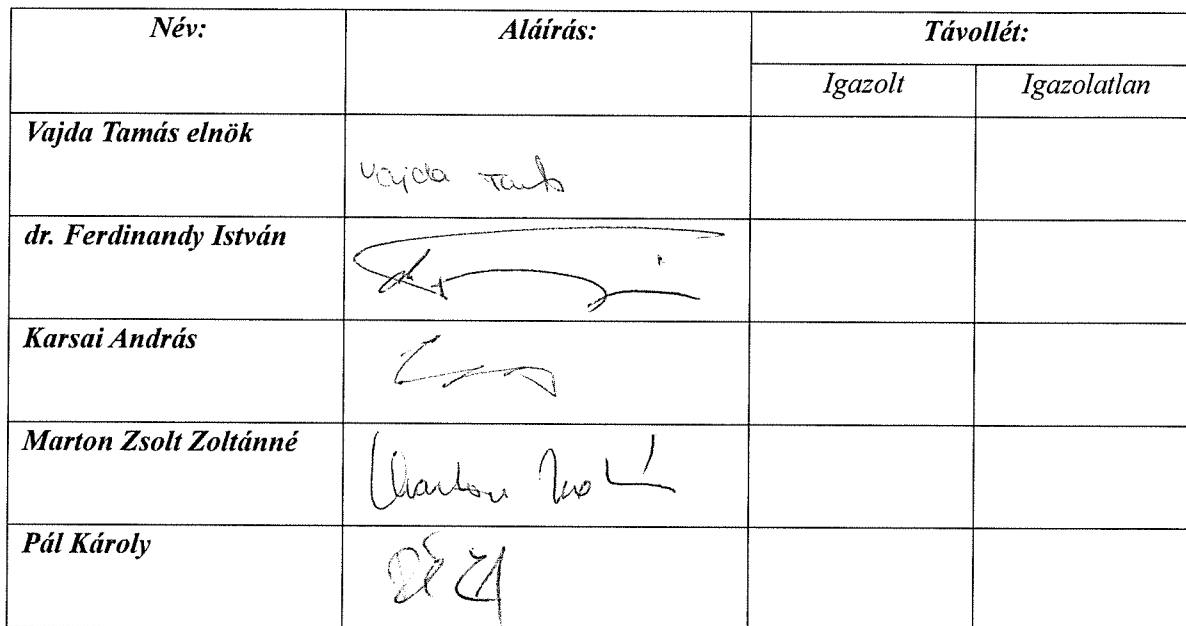 Név: Aláírás: Távollét:
Igazolt Igazolatlan
Vajda Tamás elnök
Vajda
dr. Ferdinandy István
Karsai András
Marton Zsolt Zoltánné
Marton
Pál Károly